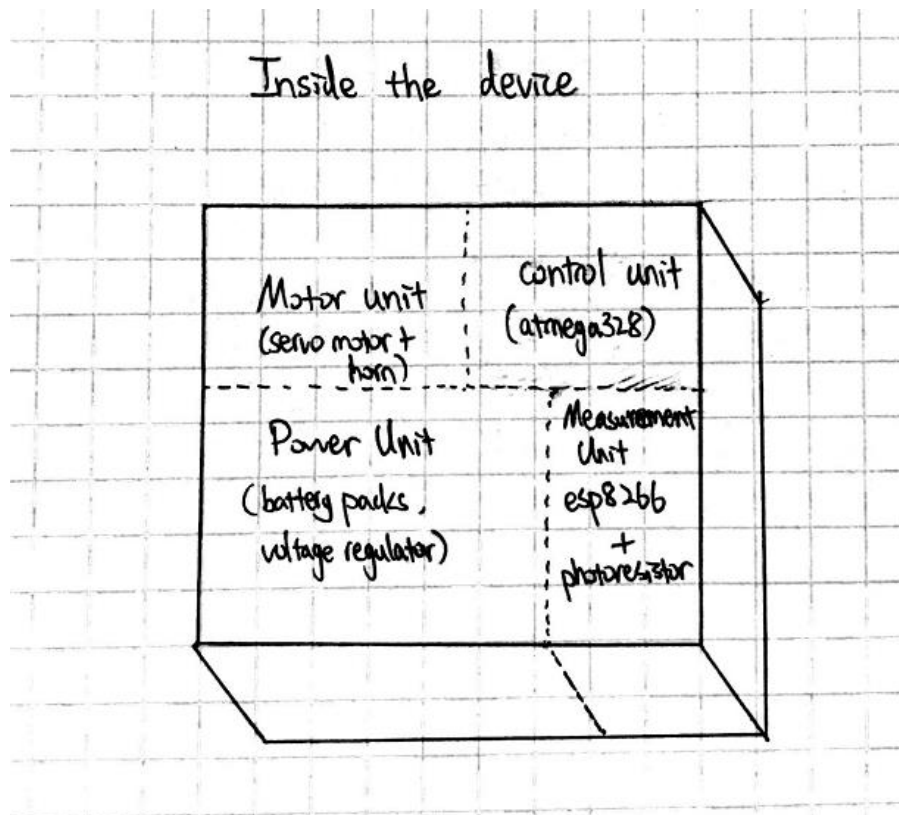 Inside the device
Motor unit
(servo motor +
horn)
control unit
(atmega328)
Power Unit
(battery packs,
voltage regulator)
Measurement
Unit
esp8266
+
photoresistor